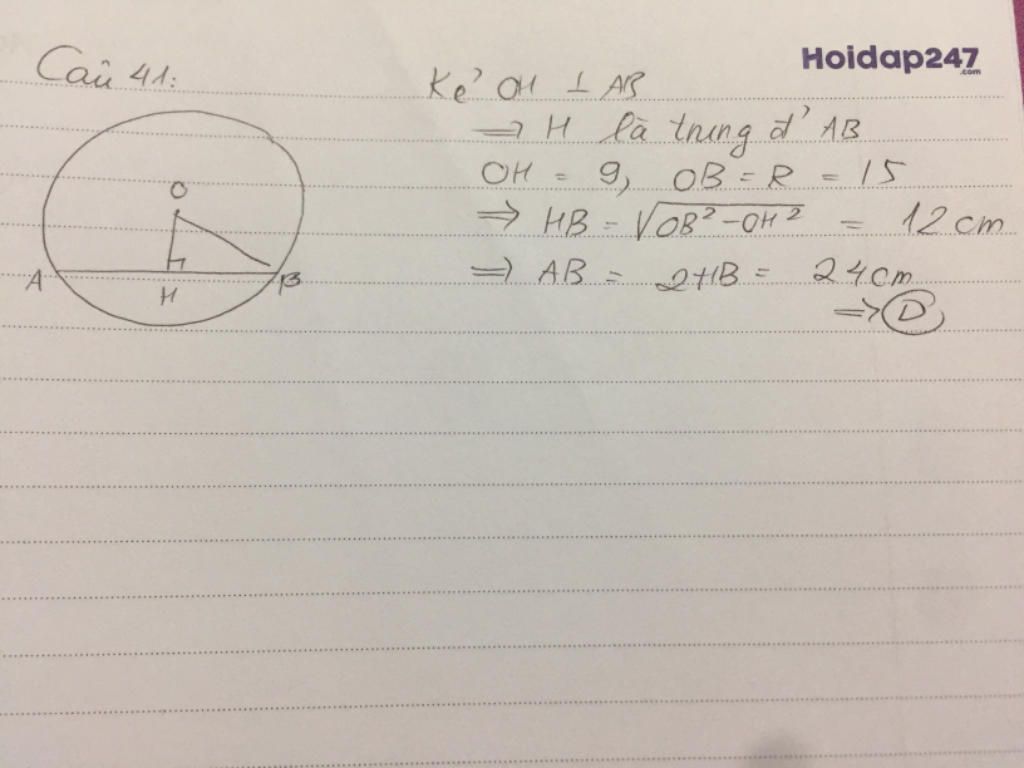 Hoidap247
.com
Câu 41:
Kẻ OH ⊥ AB
⇒ H là trung đ' AB
OH = 9, OB = R = 15
⇒ HB = √OB² - OH² = 12 cm
⇒ AB = 2HB = 24cm
⇒ D
O
A
H
B